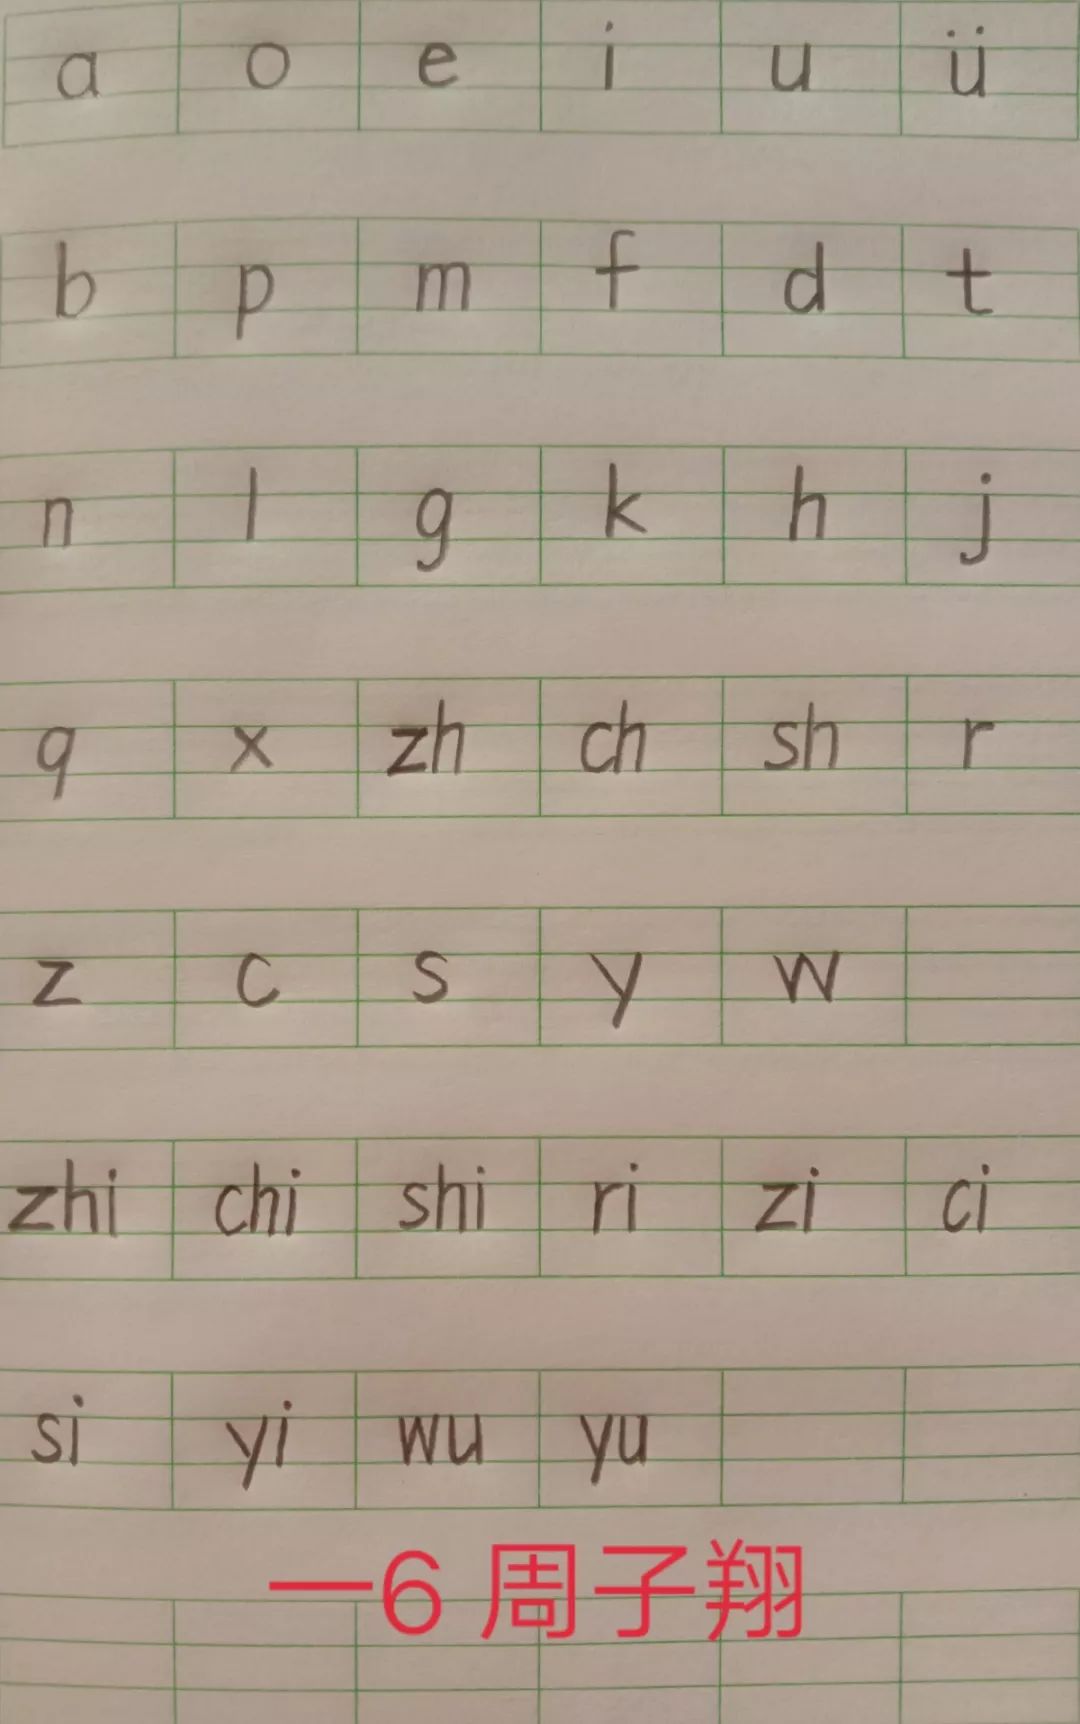 a o e i u ü
b p m f d t
n l g k h j
q x zh ch sh r
z c s y w
zhi chi shi ri zi ci
si yi wu yu
一6 周子翔